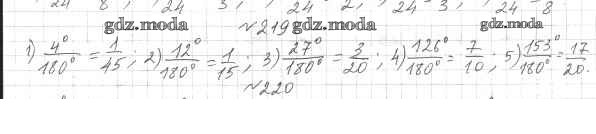 24 8 ; 24 3 ; 24 2 ; 24 3 ; 24 8
gdz.moda №219 gdz.moda
1) 4°/180° = 1/45; 2) 12°/180° = 1/15; 3) 27°/180° = 3/20; 4) 126°/180° = 7/10; 5) 153°/180° = 17/20.
№220